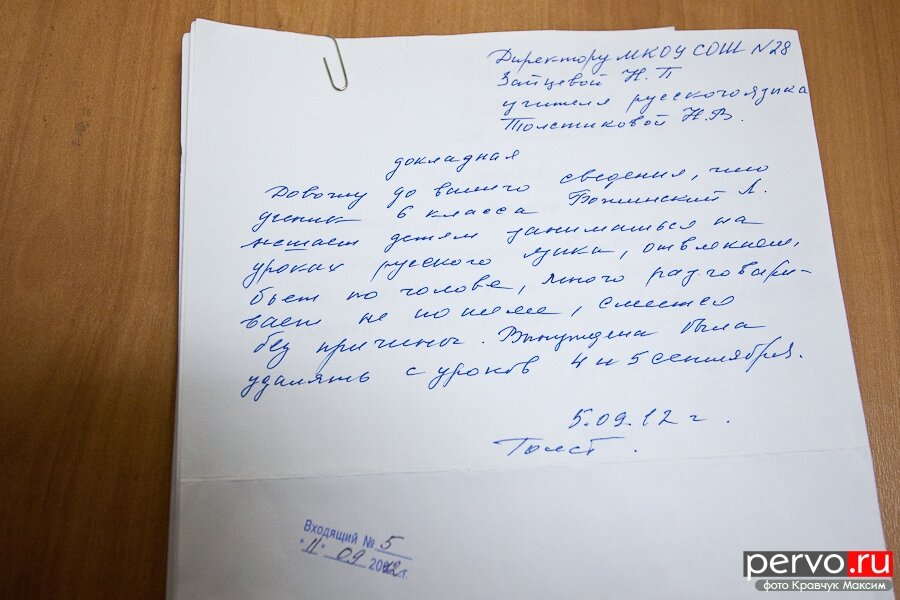 Директору МКОУ СОШ №28
Зайцевой Н.П
учителя русского языка
Толстиковой Н.В.
докладная
Довожу до вашего сведения, что
ученик 6 класса Божинский Л.
мешает детям заниматься на
уроках русского языка, отвлекает,
бьет по голове, много разговари-
вает не по теме, смеется
без причины. Вынуждена была
удалять с уроков 4 и 5 сентября.
5.09.12 г.
Толст.
Входящий № 5
"11" 09 2012г.
pervo.ru
фото Кравчук Максим